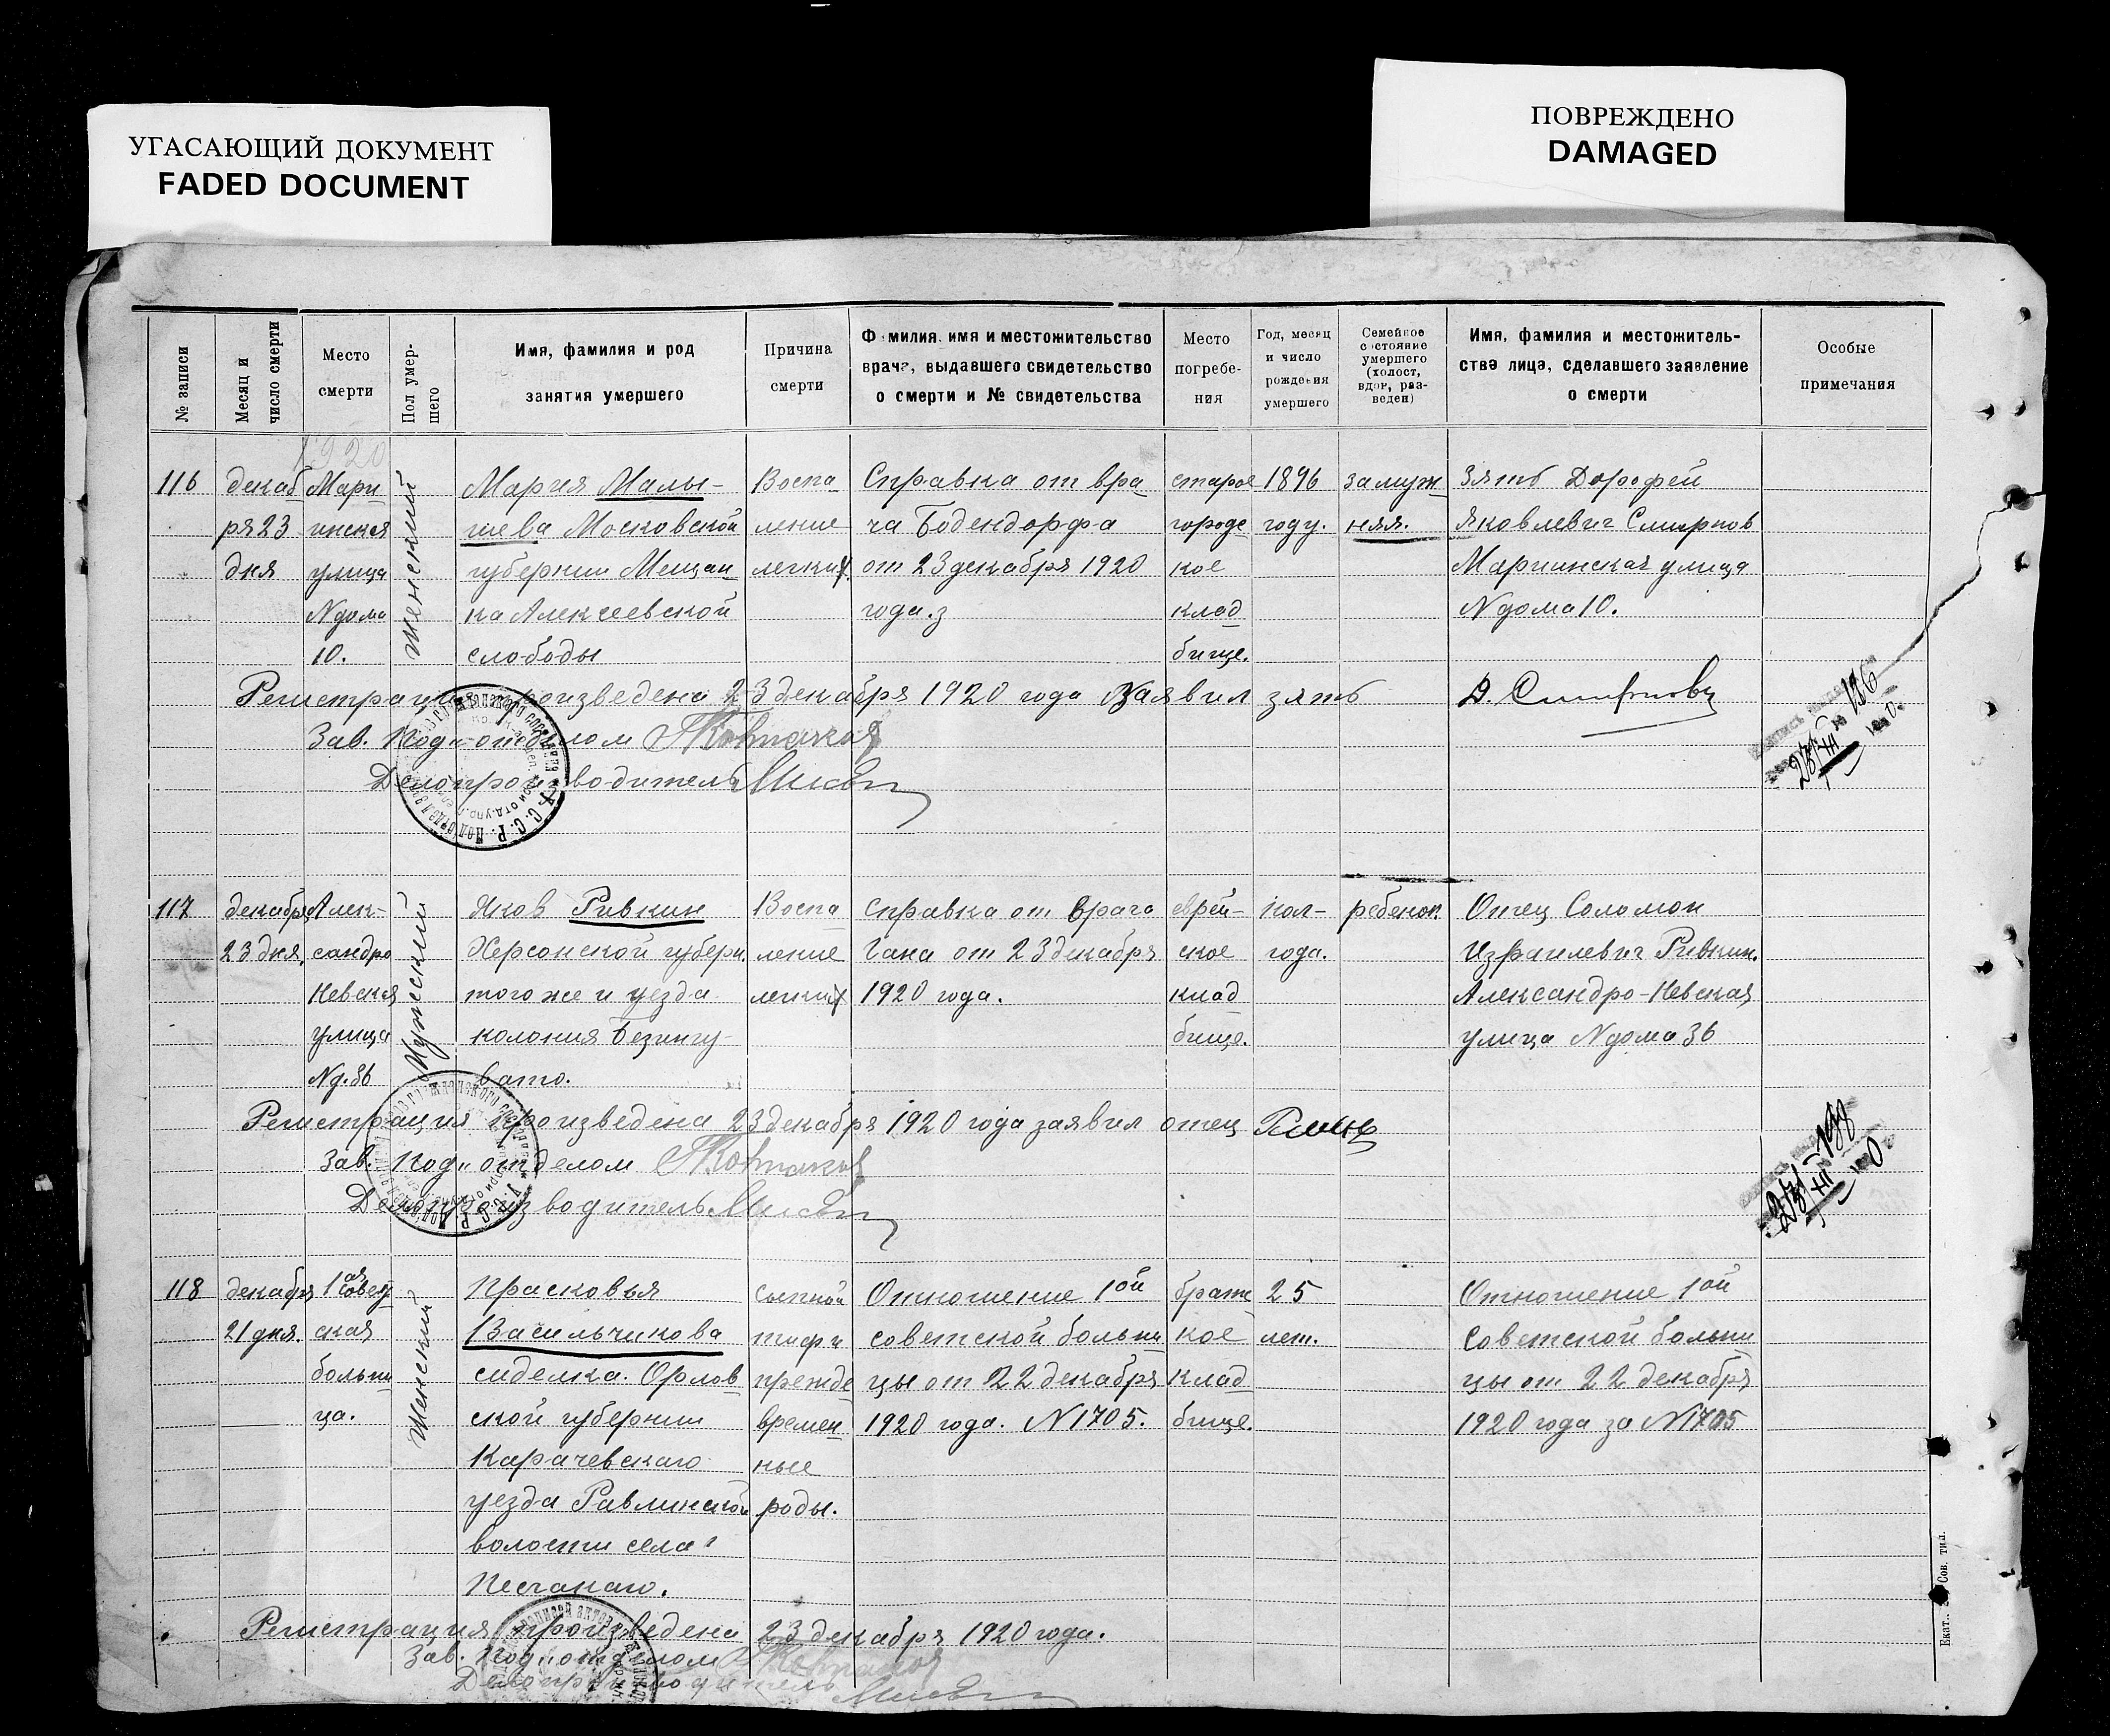 УГАСАЮЩИЙ ДОКУМЕНТ
FADED DOCUMENT
ПОВРЕЖДЕНО
DAMAGED
№ записи
Месяц и
число смерти
Место
смерти
Пол умер-
шего
Имя, фамилия и род
занятия умершего
Причина
смерти
Фамилия, имя и местожительство
врача, выдавшего свидетельство
о смерти и № свидетельства
Место
погребе-
ния
Год, месяц
и число
рождения
умершего
Семейное
состояние
умершего
(холост,
вдов, раз-
веден)
Имя, фамилия и местожитель-
ства лица, сделавшего заявление
о смерти
Особые
примечания
1920
116
декаб
ря 23
дня
Мари
инская
улица
N дома
10.
Женский
Мария Малы-
шева Московской
губернии Мещан
ка Алексеевской
слободы
Воспа
ление
легких
Справка от вра
ча Бодендорфа
от 23 декабря 1920
года.
старое
городс
кое
клад
бище.
1896
году.
замуж
няя.
Зять Дорофей
Яковлевич Смирнов
Мариинская улица
N дома 10.
Регистрация произведена 23 декабря 1920 года Заявил зять
Д. Смирновъ
Зав. Под"отделом
Делопроизводитель
117
декабря
23 дня.
Алек-
сандро
Невская
улица
N д. 36
Мужской
Яков Ривкин
Херсонской губерн.
того же и уезда
колония Безингу-
вато.
Воспа
ление
легких
Справка от врача
Гана от 23 декабря
1920 года.
еврей-
ское
клад
бище.
пол-
года.
ребенок.
Отец Соломон
Израилевич Ривкин.
Александро-Невская
улица N дома 36
Регистрация произведена 23 декабря 1920 года заявил отец
Зав. Под"отделом
Делопроизводитель
118
декабря
21 дня.
1ая Совет
ская
больни
ца.
Женский
Прасковья
Васильчикова
сиделка. Орлов
ской губернии
Карачевскаго
уезда Равлинской
волости села
Песчанаго.
Сыпной
тиф и
прежде
времен
ные
роды.
Отношение 1ой
советской больни
цы от 22 декабря
1920 года. N 1705.
братс
кое
клад
бище.
25
лет.
Отношение 1ой
Советской больни
цы от 22 декабря
1920 года за N 1705
Регистрация произведена 23 декабря 1920 года.
Зав. Под"отделом
Делопроизводитель